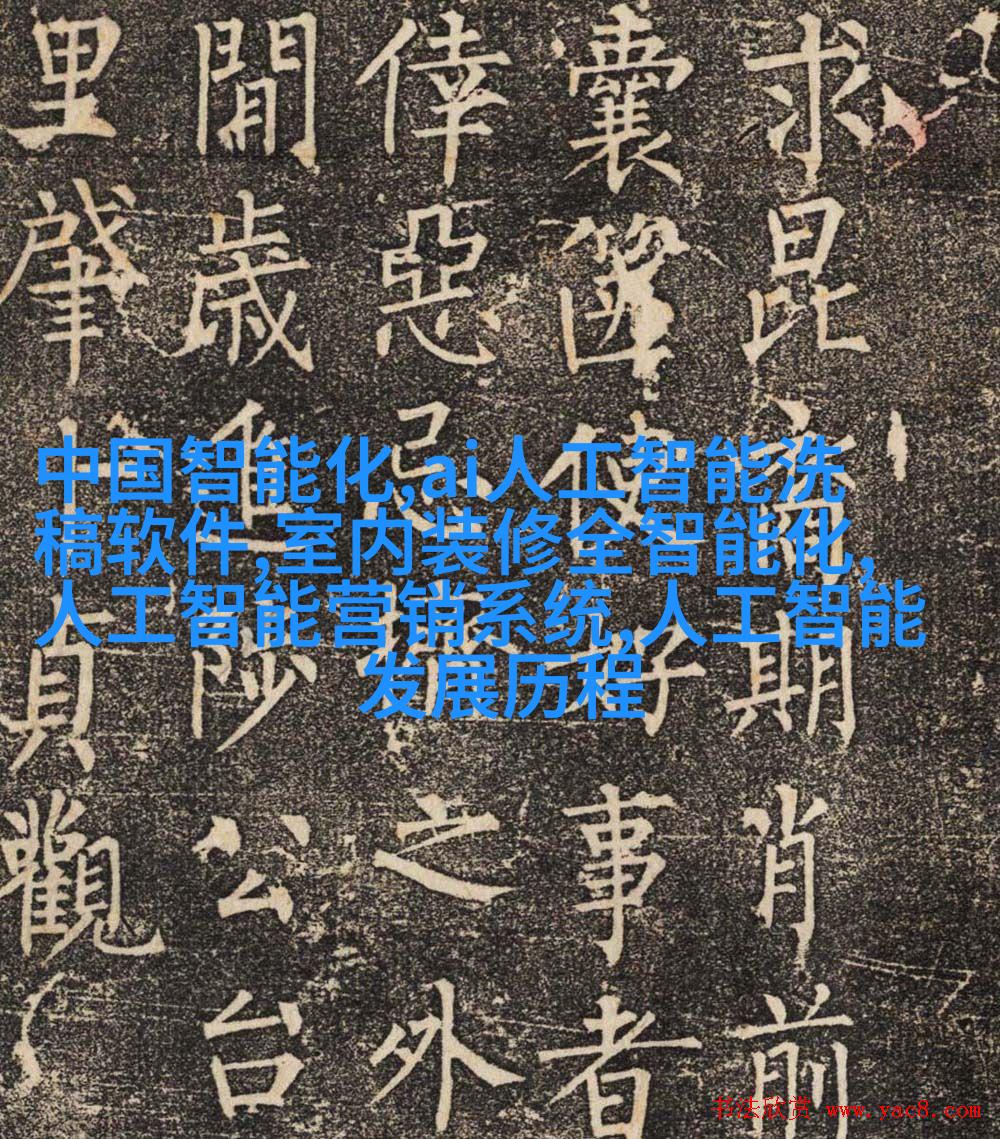 中国智能化,ai人工智能洗
稿软件,室内装修全智能化,
人工智能营销系统,人工智能
发展历程
求昆期肖前
囊篋使好事者
倖惡忌之外
閒歲進陟公台
里肇貞觀
书法欣赏 www.yac8.com